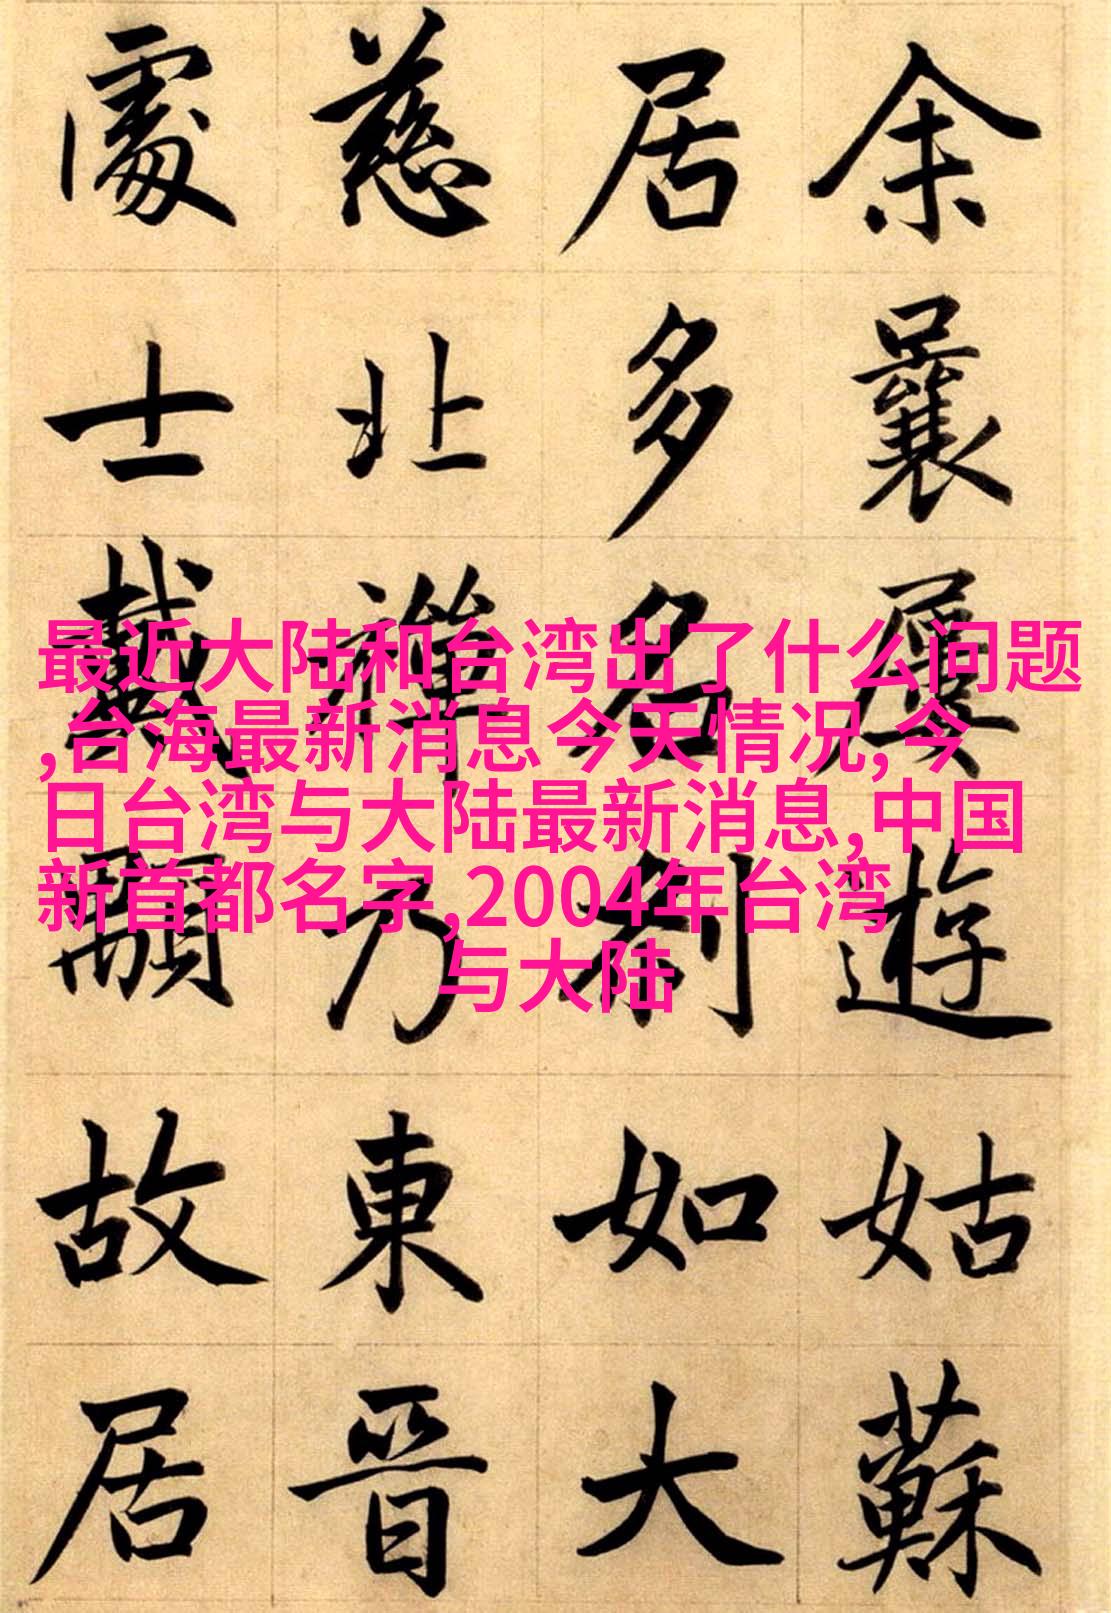 余曩屢遊姑蘇
居多名刹如大
慈北禪乃東晉
處士戴顒故居
最近大陆和台湾出了什么问题
,台海最新消息今天情况,今
日台湾与大陆最新消息,中国
新首都名字,2004年台湾
与大陆